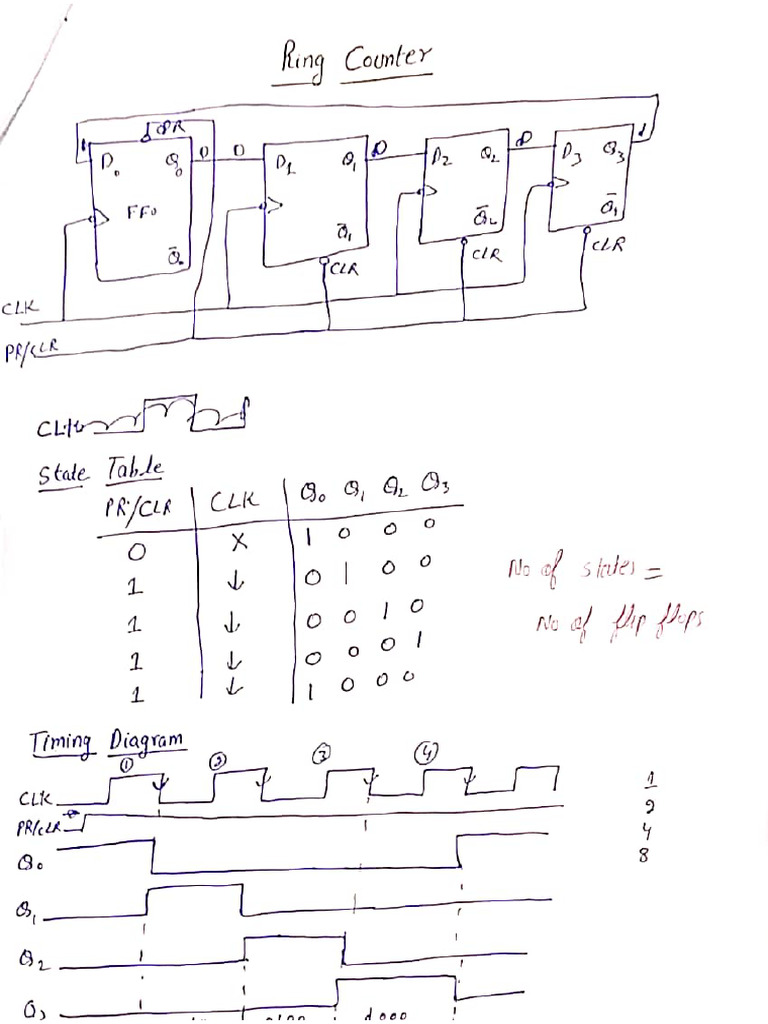 Ring Counter
PR
1 D0 Q0 0 0 D1 Q1 0 D2 Q2 0 D3 Q3 1
FF0
Q̅0 Q̅1 Q̅2 Q̅1
CLR CLR CLR
CLK
PR/CLR
CLK
State Table
PR/CLR CLK Q0 Q1 Q2 Q3
0 X 1 0 0 0
1 ↓ 0 1 0 0
1 ↓ 0 0 1 0
1 ↓ 0 0 0 1
1 ↓ 1 0 0 0
No of states =
No of flip flops
Timing Diagram
① ② ③ ④
CLK
PR/CLR
Q0
Q1
Q2
Q3
1
2
4
8
1000